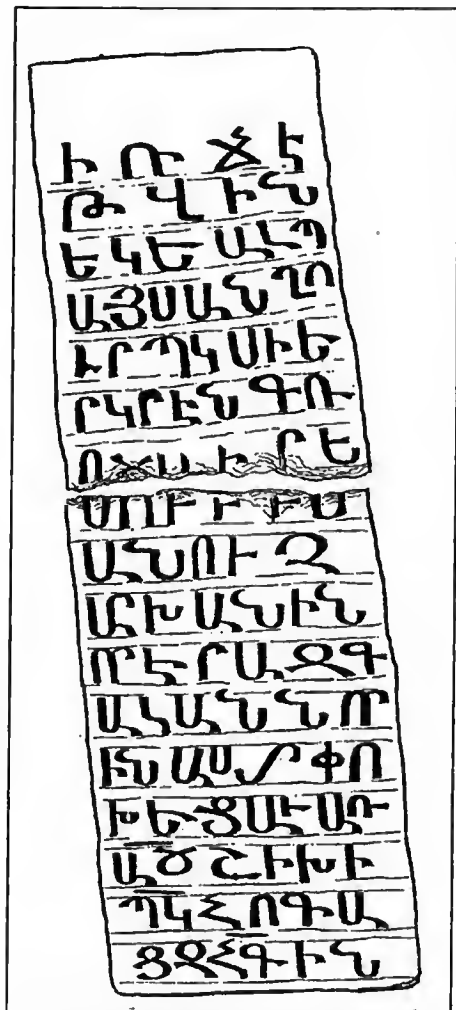 Ի ՌՃԷ
ԹՎԻՆ
ԵԿԵԱԼՊ
ԱՅՍԱՆՂՈ
ՒՐՊԿՍԻԵ
ՐԿՐԷՆԳՌ
ՈՃՍԻՐԵ
ՍՈՒԻՒՍ
ԱՆՈՒՉ
ԱՐԽԱՆԻՆ
ՈՐԷՐԱԶԳ
ԱԿԱՆՆՈՐ
ԻՆԱՍՏՓՈ
ԽԵՑԱՒԱՌ
ԱԾ ՇԻԽԻ
ՊԿՀՈԳԱ
ՑԶՀԳԻՆ